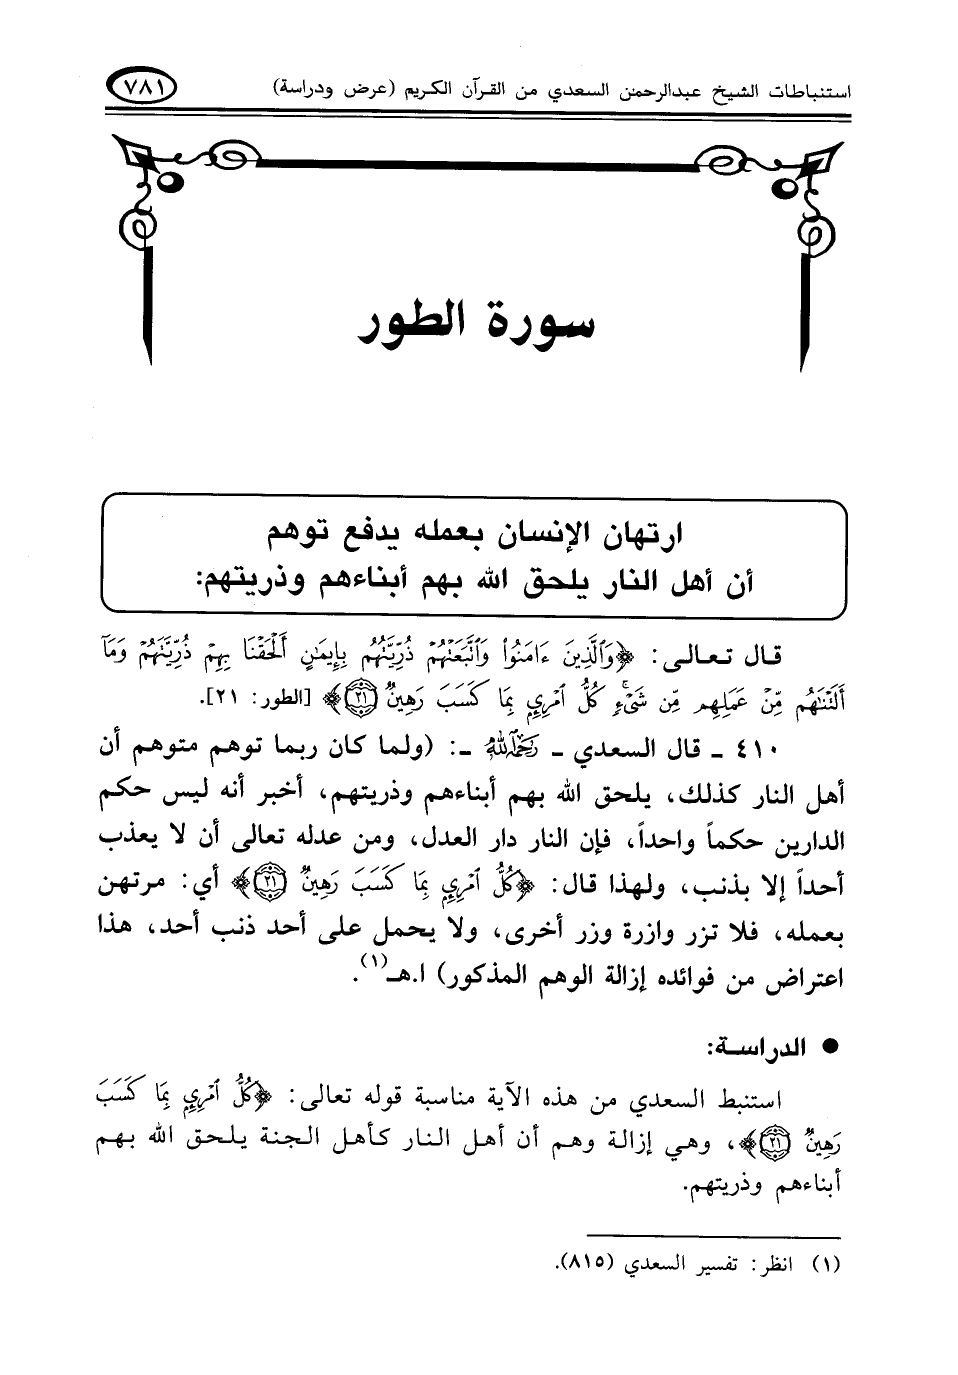 استنباطات الشيخ عبدالرحمن السعدي من القرآن الكريم (عرض ودراسة) ٧٨١
سورة الطور
ارتهان الإنسان بعمله يدفع توهم
أن أهل النار يلحق الله بهم أبناءهم وذريتهم:
قال تعالى: ﴿وَٱلَّذِينَ ءَامَنُوا۟ وَٱتَّبَعَتْهُمْ ذُرِّيَّتُهُم بِإِيمَٰنٍ أَلْحَقْنَا بِهِمْ ذُرِّيَّتَهُمْ وَمَآ
أَلَتْنَٰهُم مِّنْ عَمَلِهِم مِّن شَىْءٍ كُلُّ ٱمْرِئٍ بِمَا كَسَبَ رَهِينٌ ٢١﴾ [الطور: ٢١].
٤١٠ ـ قال السعدي ـ رَحِمَهُ اللهُ ـ: (ولما كان ربما توهم متوهم أن
أهل النار كذلك، يلحق الله بهم أبناءهم وذريتهم، أخبر أنه ليس حكم
الدارين حكماً واحداً، فإن النار دار العدل، ومن عدله تعالى أن لا يعذب
أحداً إلا بذنب، ولهذا قال: ﴿كُلُّ ٱمْرِئٍ بِمَا كَسَبَ رَهِينٌ ٢١﴾ أي: مرتهن
بعمله، فلا تزر وازرة وزر أخرى، ولا يحمل على أحد ذنب أحد، هذا
اعتراض من فوائده إزالة الوهم المذكور) ا.هـ(١).
● الدراسة:
استنبط السعدي من هذه الآية مناسبة قوله تعالى: ﴿كُلُّ ٱمْرِئٍ بِمَا كَسَبَ
رَهِينٌ ٢١﴾، وهي إزالة وهم أن أهل النار كأهل الجنة يلحق الله بهم
أبناءهم وذريتهم.
(١) انظر: تفسير السعدي (٨١٥).